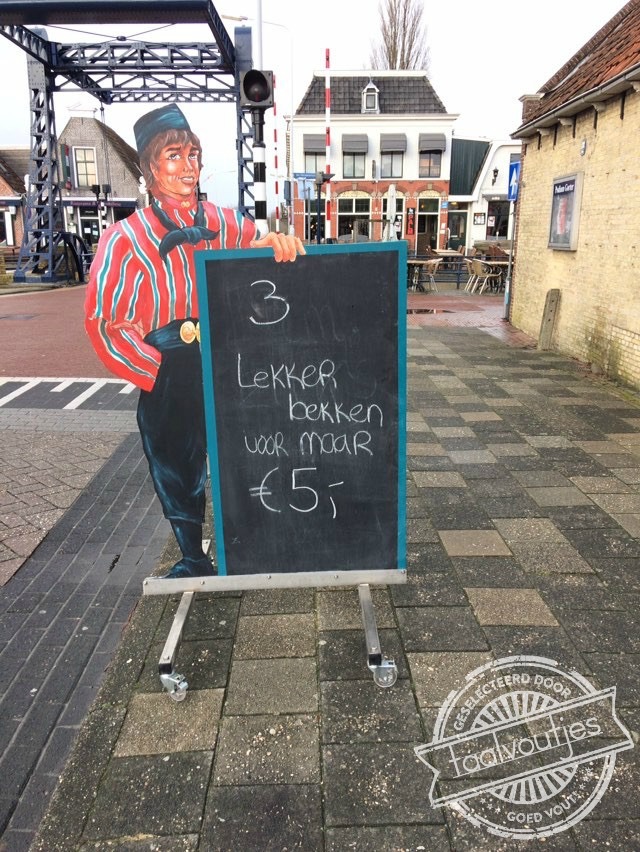 3
Lekker
bekken
voor maar
€5,-
GESELECTEERD DOOR
taalvoutjes
GOED VOUT!